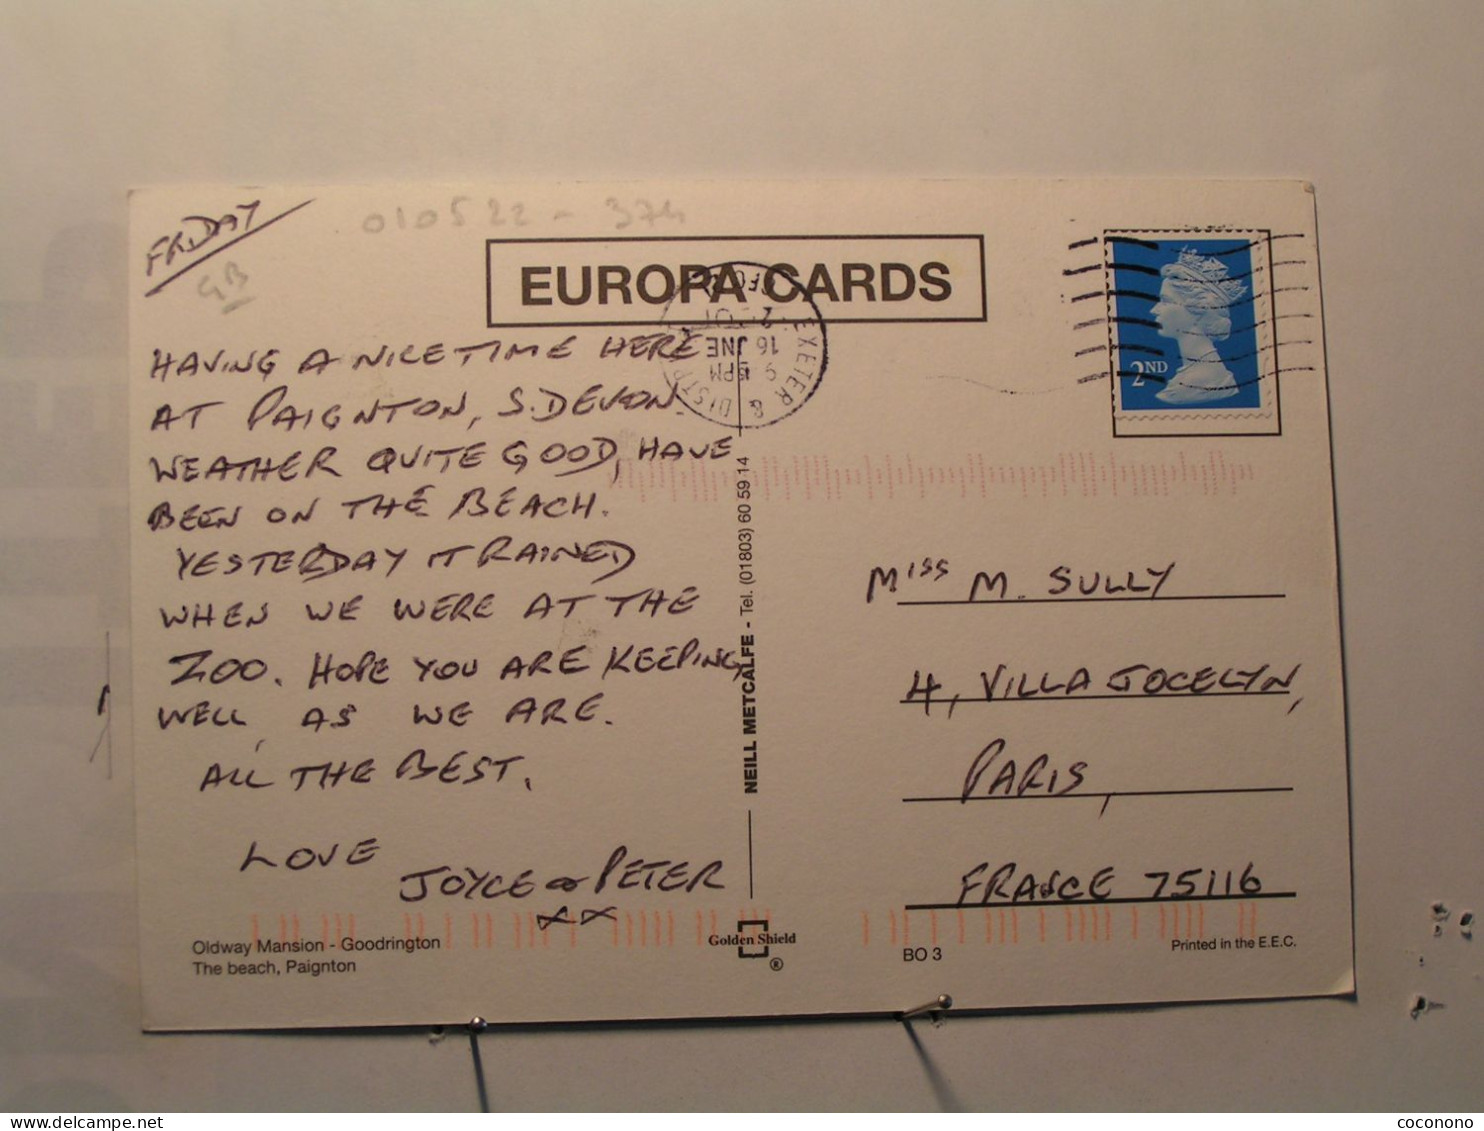 FRIDAY
GB
010522 - 374
EUROPA CARDS
EXETER & DIST
9 15PM
16 JNE
2001
2ND
HAVING A NICE TIME HERE
AT PAIGNTON, S. DEVON
WEATHER QUITE GOOD, HAVE
BEEN ON THE BEACH.
YESTERDAY IT RAINED
WHEN WE WERE AT THE
ZOO. HOPE YOU ARE KEEPING
WELL, AS WE ARE.
ALL THE BEST.
LOVE
JOYCE & PETER
XX
NEILL METCALFE - Tel. (01803) 60 59 14
MISS M. SULLY
4, VILLA JOCELYN,
PARIS,
FRANCE 75116
Oldway Mansion - Goodrington
The beach, Paignton
Golden Shield
®
BO 3
Printed in the E.E.C.
coconono